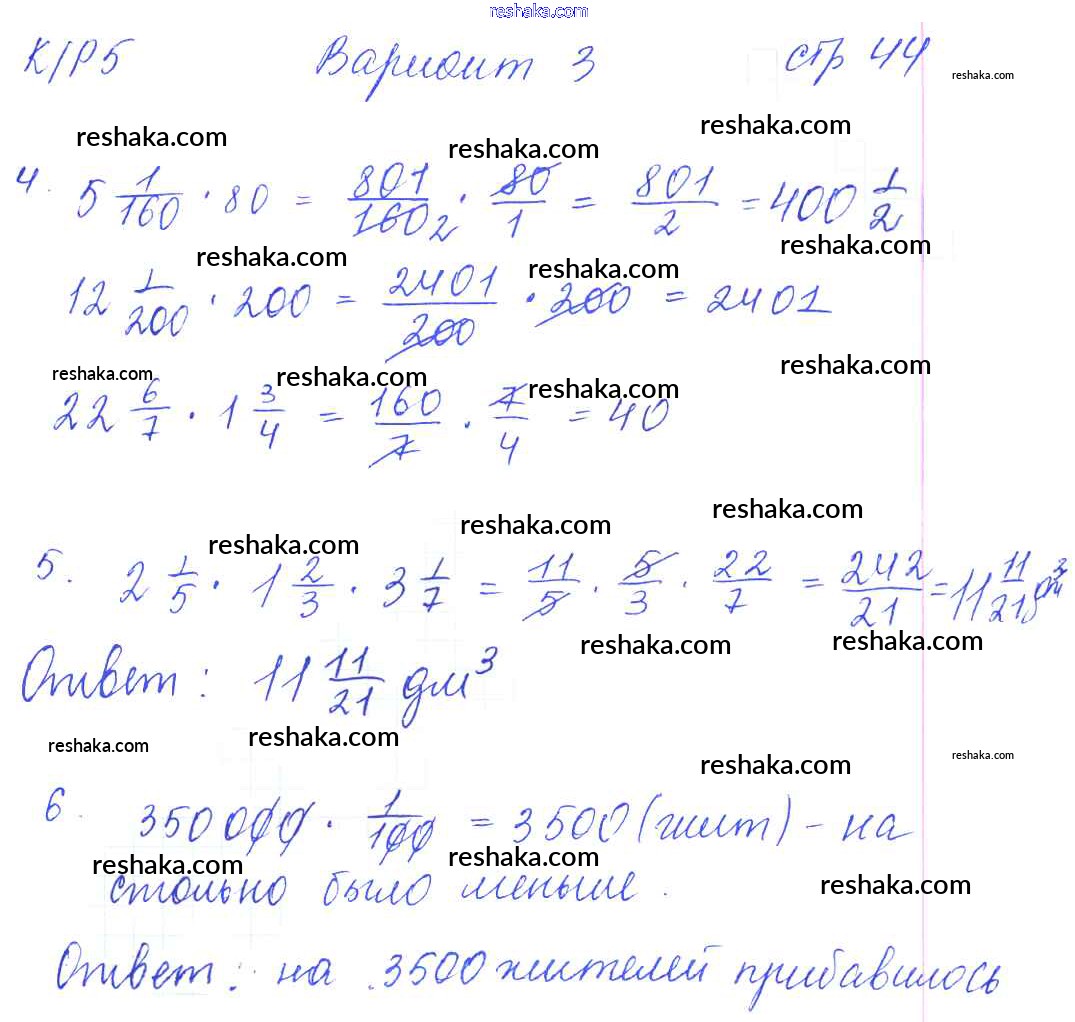 reshaka.com
К/Р5 Вариант 3 стр 44
reshaka.com
reshaka.com reshaka.com reshaka.com
4. 5 1/160 · 80 = 801/160 2 · 80/1 = 801/2 = 400 1/2
reshaka.com reshaka.com reshaka.com
12 1/200 · 200 = 2401/200 · 200 = 2401
reshaka.com reshaka.com reshaka.com reshaka.com
22 6/7 · 1 3/4 = 160/7 · 7/4 = 40
reshaka.com reshaka.com reshaka.com
5. 2 1/5 · 1 2/3 · 3 1/7 = 11/5 · 5/3 · 22/7 = 242/21 = 11 11/21 дм³
reshaka.com reshaka.com
Ответ: 11 11/21 дм³
reshaka.com reshaka.com reshaka.com reshaka.com
6. 350000 · 1/100 = 3500 (жит) - на
reshaka.com reshaka.com reshaka.com
столько было меньше.
Ответ: на 3500 жителей прибавилось